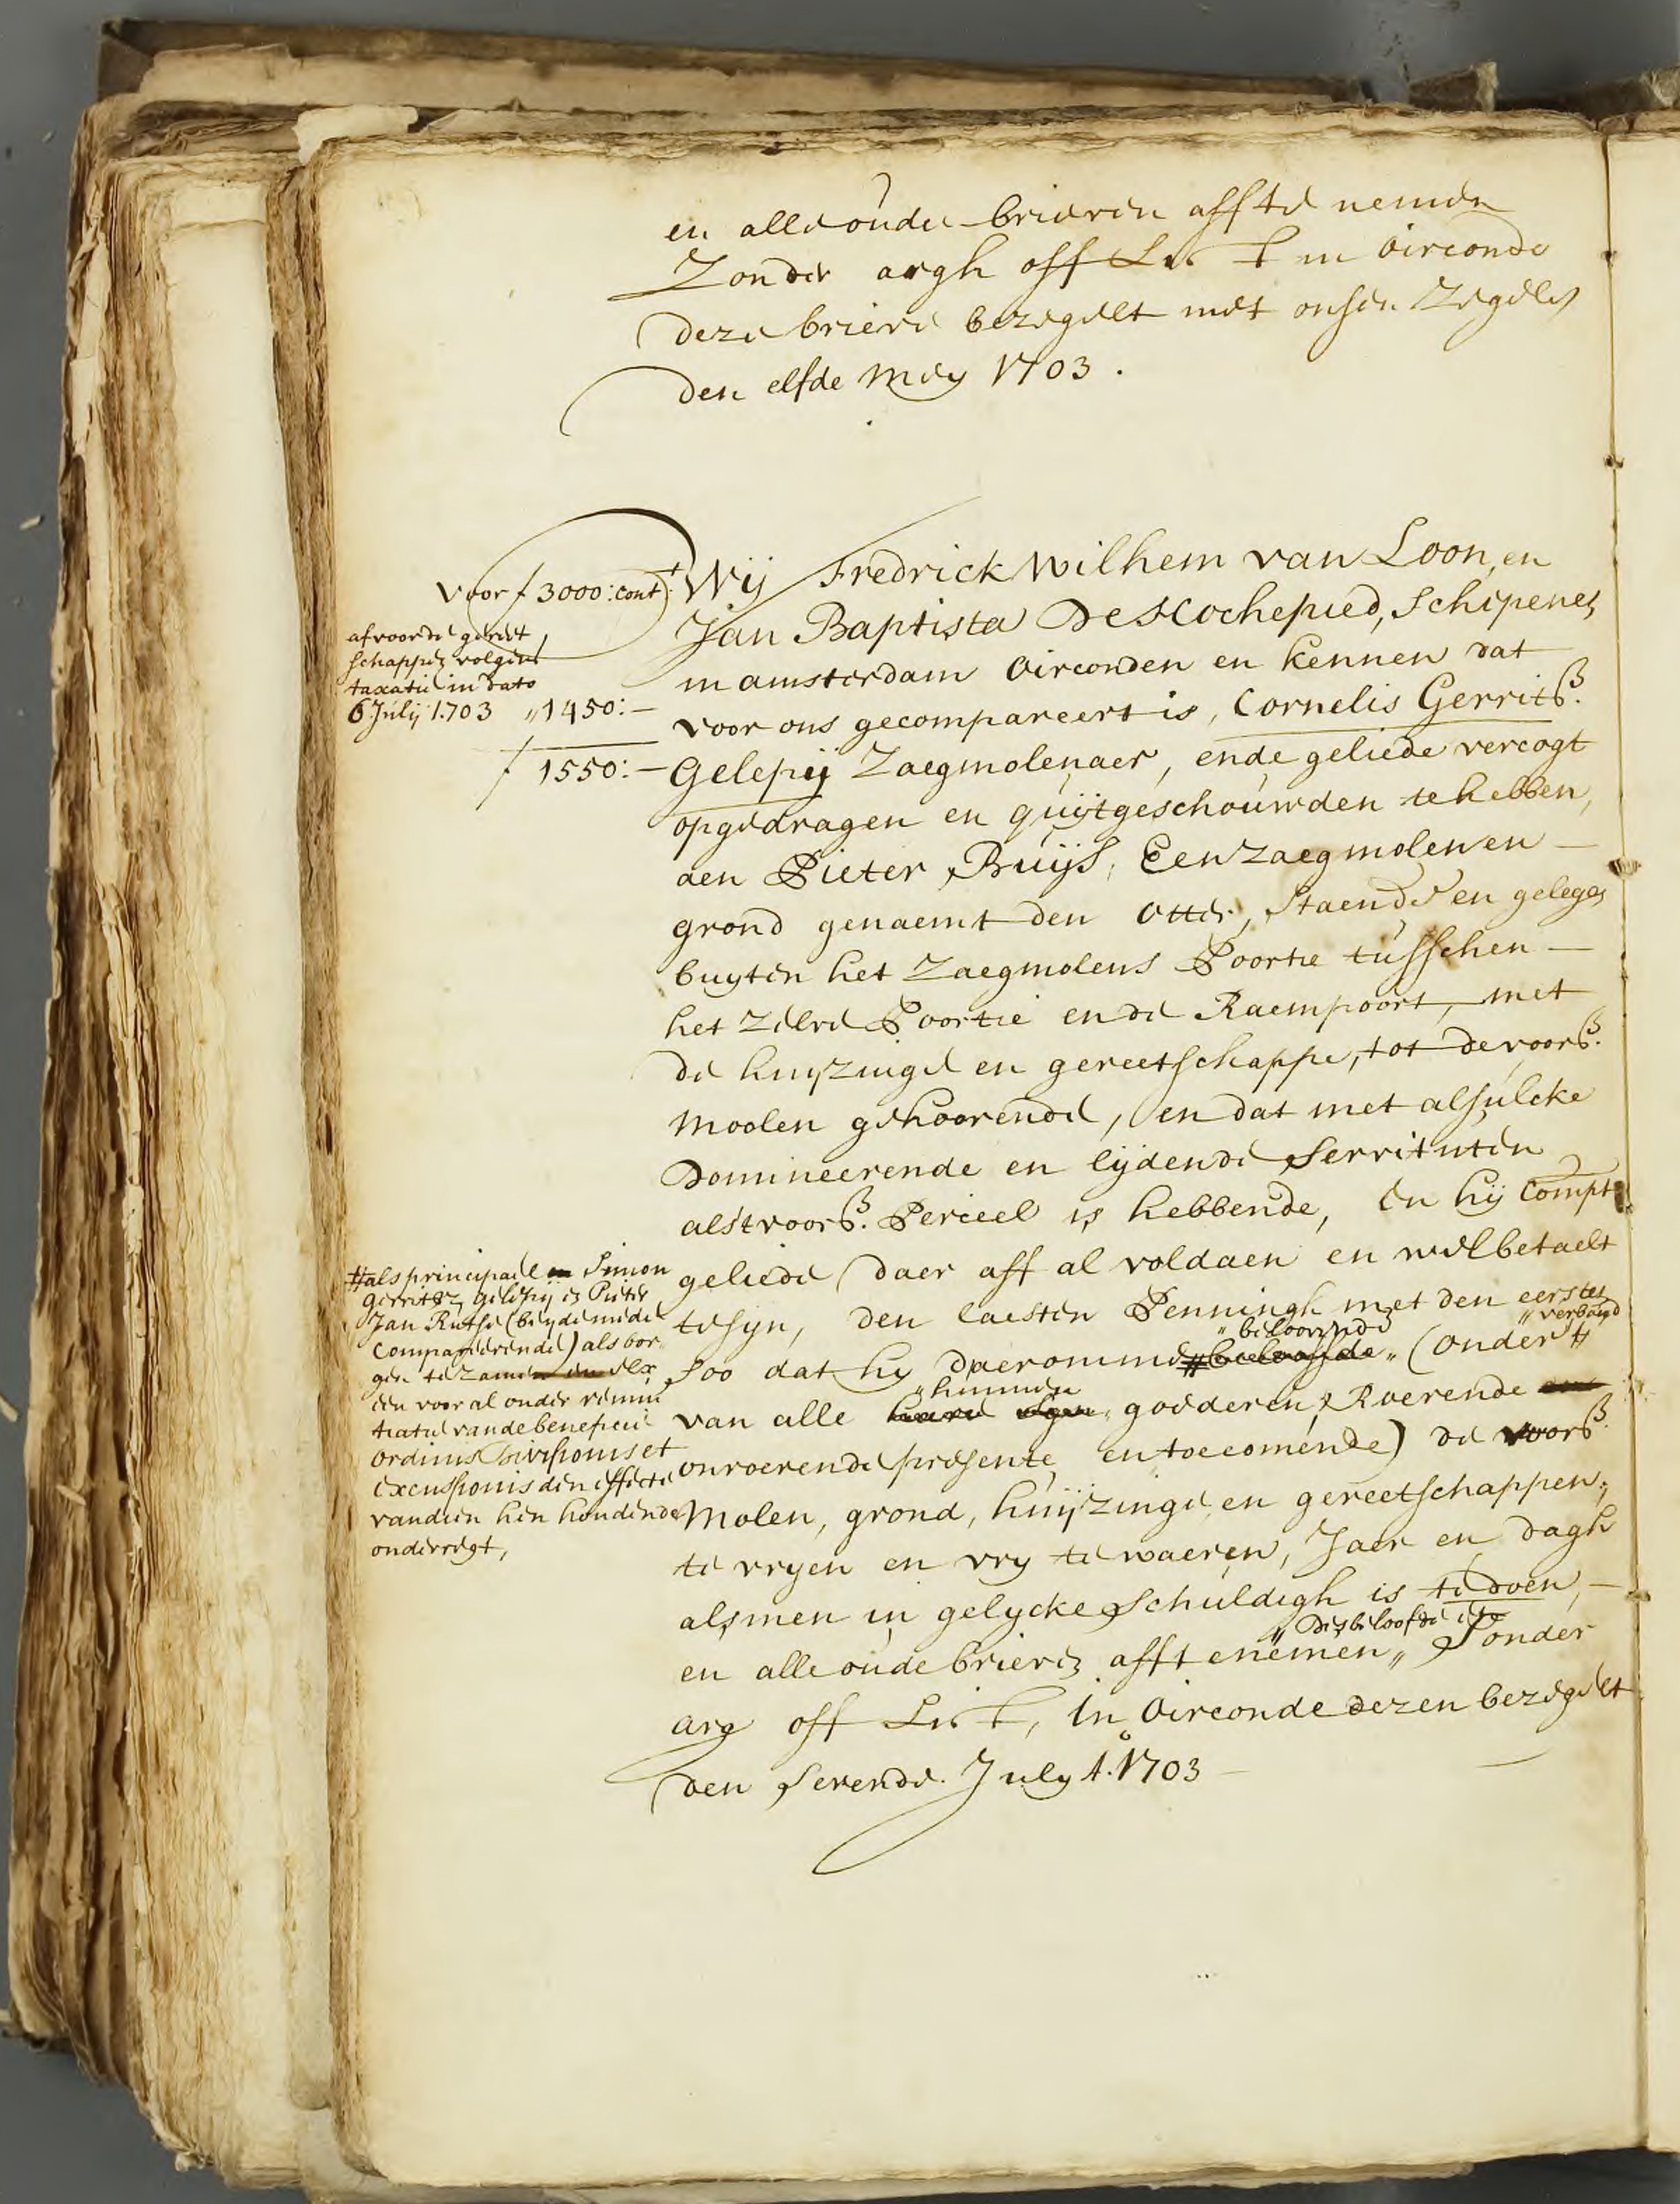 en alle oude brieven aff te nemen
Zonder argh off List in Oirconde
deze brieve bezegelt met onsen Zegelen
den elfde mey 1703.
Voor f 3000: cont
af voor de gereet
schappen volgens
taxatie in dato
6 July 1703 „ 1450:—
f 1550:—
Wij Fredrick Wilhem van Loon, en
Jan Baptista De Hochepied, Schepenen
in amsterdam Oirconden en kennen dat
voor ons gecompareert is, Cornelis Gerritß.
Gelepij Zaegmolenaer, ende geliede vercogt
opgedragen en quijtgeschouwden te hebben,
aen Pieter Buijs, Een zaegmolen en —
grond genaemt den Otter, staende en gelegen
buyten het Zaegmolens Poortie tusschen —
het zelve Poortie en de Raempoort, met
de huyzinge en gereetschappe, tot de voorß.
Moolen gehoorende, en dat met alsulcke
Domineerende en lydende Servituten
als 't voorß. Perceel is hebbende, En hij Compt
geliede daer aff al voldaen en wel betaelt
te syn, den laesten Penningh met den eersten
„ beloovende „ verband
soo dat hy daeromme # beloofde „ (onder #
„ hunnen
van alle haere eigen „ goederen, Roerende en
onroerende presente en toecomende) de voorß.
Molen, grond, huijzinge, en gereetschappen,
te vryen en vry te waeren, Jaer en dagh
alsmen in gelycke Schuldigh is te doen, —
„ des beloofde
en alle oude brieven aff te nemen „ Sonder
arg off List, In Oirconde dezen bezegelt
den sevende July Aº. 1703 —
# als principale en Simon
Gerritsz gelepij en Pieter
Jan Rutse (beyde mede
Comparerende) als bor
gen te zamen en elx
een voor al onder renun
tiatie van de beneficie
ordinis divisionis et
excussionis den effecte
van dien hen houdende
onderregt,